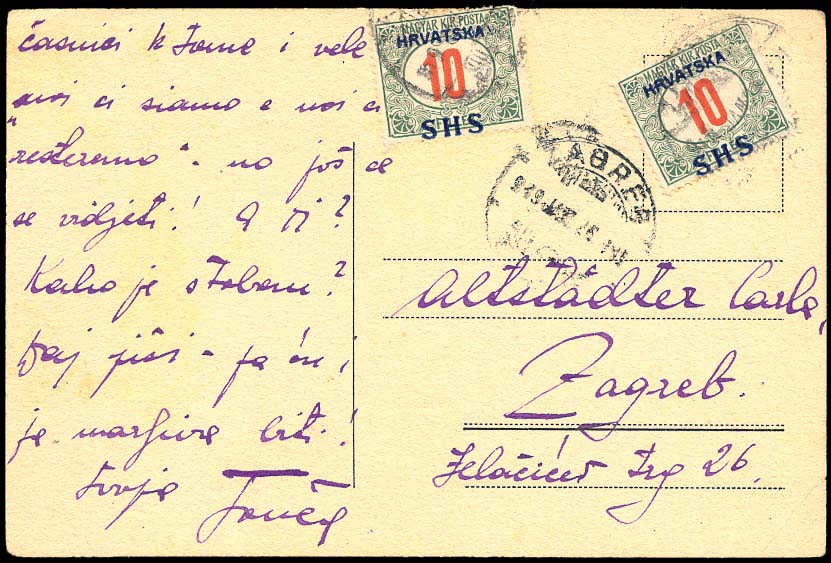 časnici k tome i vele
"noi ci siamo e noi ci
resteremo" - no još će
se vidjeti! A ti?
Kako je s tobom?
Daj piši - ja ću i
je marljive biti!
Tvoja
MAGYAR KIR. POSTA
HRVATSKA
10
SHS
MAGYAR KIR. POSTA
HRVATSKA
10
SHS
Altstädter Carla,
Zagreb.
Jelačićev trg 26.